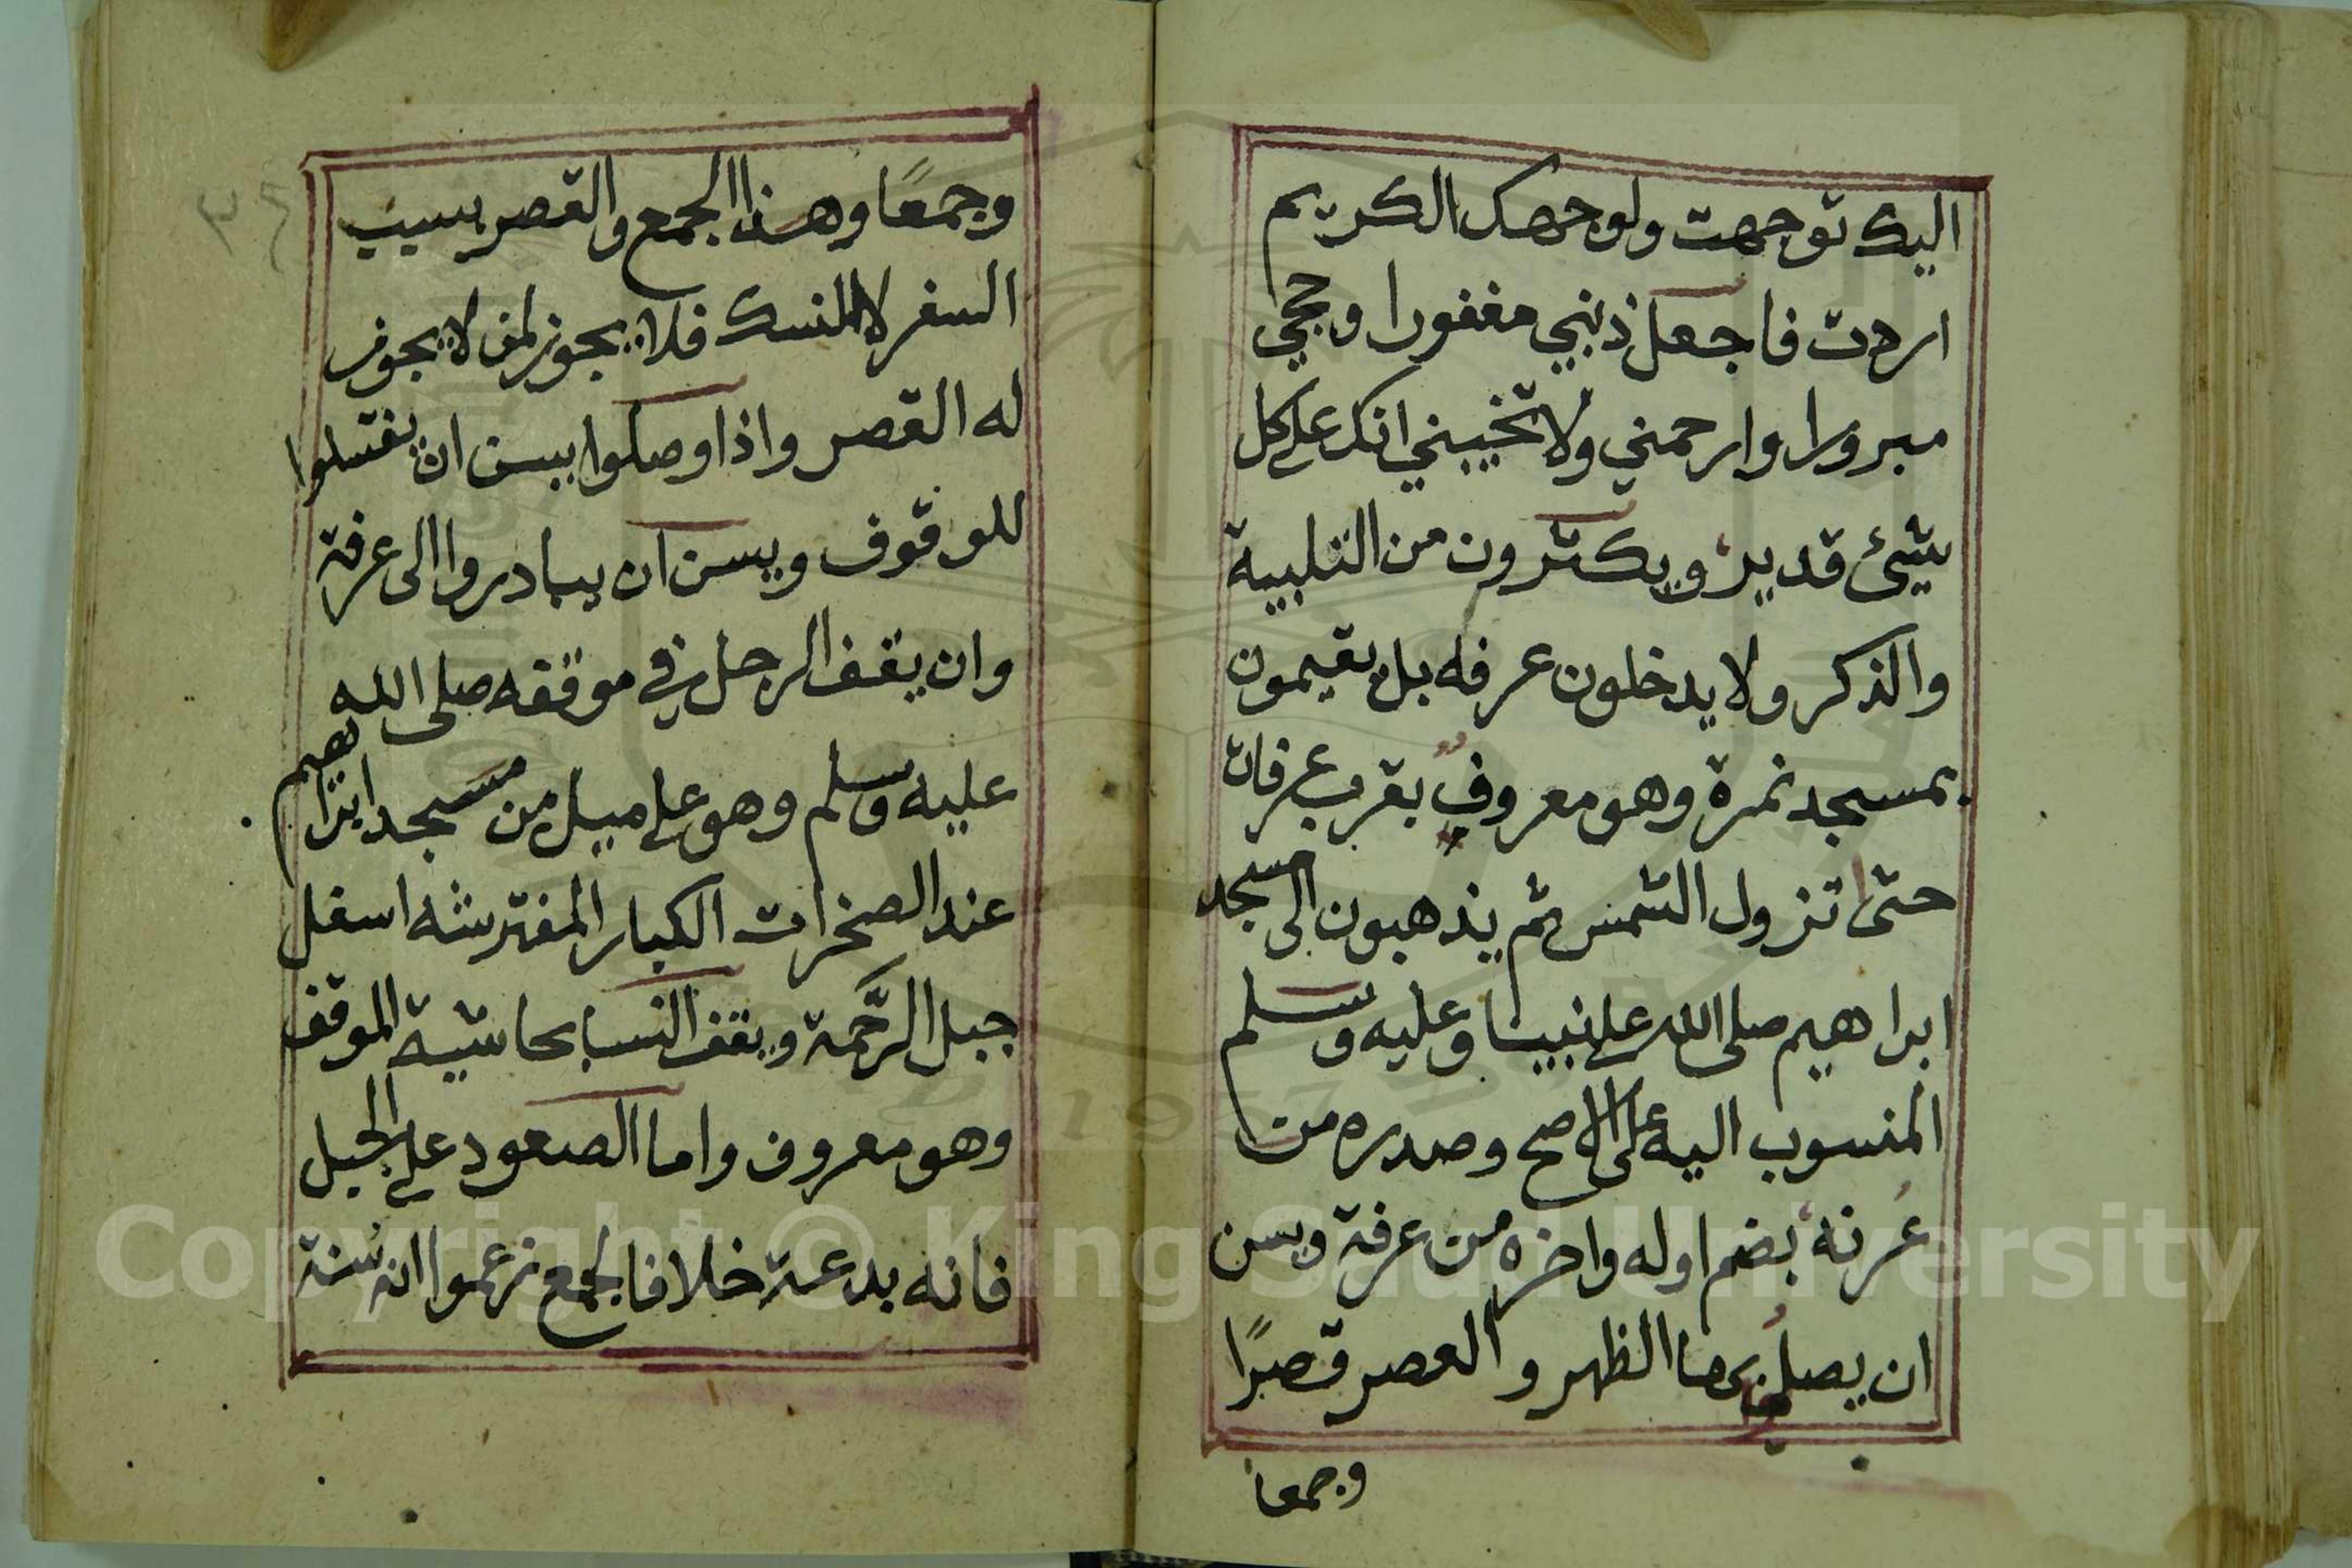 اليك توجهت ولوجهك الكريم
اردت فاجعل ذنبي مغفورا وحجي
مبرورا وارحمني ولا تخيبني انك على كل
شيئ قدير ويكثرون من التلبية
والذكر ولا يدخلون عرفه بل يقيمون
بمسجد نمرة وهو معروف بقرب عرفات
حتى تزول الشمس ثم يذهبون الى مسجد
ابراهيم صلى الله على نبينا وعليه وسلم
المنسوب اليه على الاصح وصدره من
عُرنة بضم اوله واخره من عرفة ويسن
ان يصلوا بها الظهر والعصر قصرًا
وجمعا
٣٤
وجمعًا وهذا الجمع والقصر بسبب
السفر لا للنسك فلا يجوز لمن لا يجوز
له القصر واذا وصلوا يسن ان يغتسلوا
للوقوف ويسن ان يبادروا الى عرفة
وان يقف الرجل في موقفه صلى الله
عليه وسلم وهو على ميل من مسجد ابراهيم
عند الصخرات الكبار المفترشه اسفل
جبل الرَّحمة ويقف النسا بحاشية الموقف
وهو معروف واما الصعود على الجبل
فانه بدعة خلافا لجمع زعموا انه سُنة
Copyright © King Saud University
1957